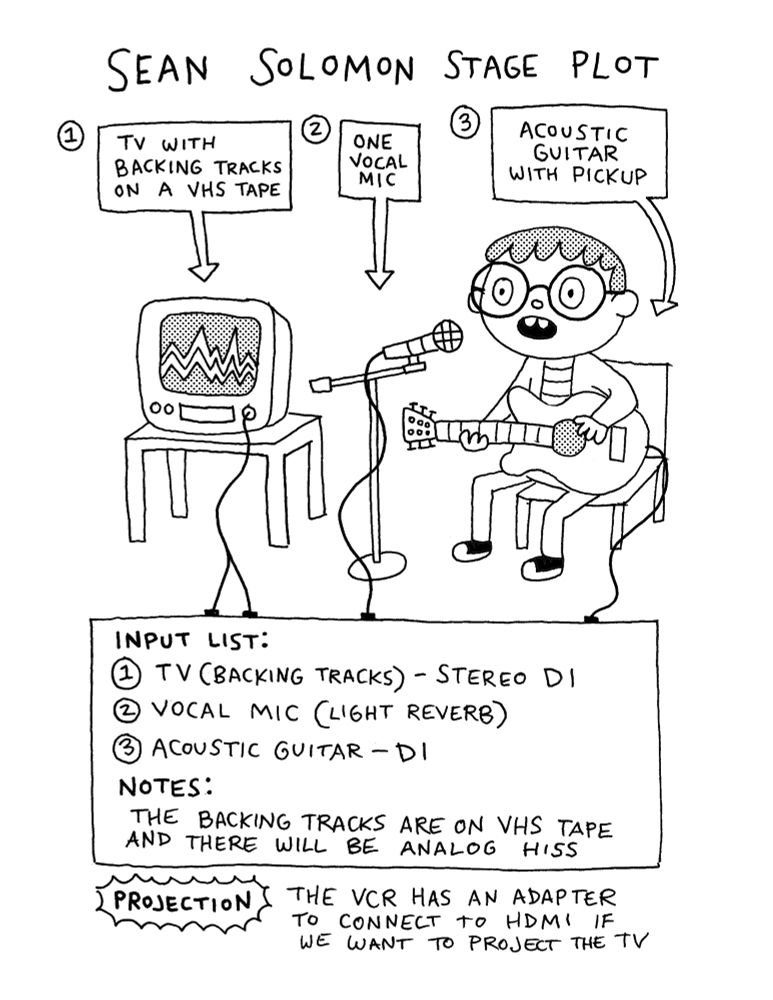 SEAN SOLOMON STAGE PLOT
1
TV WITH
BACKING TRACKS
ON A VHS TAPE
2
ONE
VOCAL
MIC
3
ACOUSTIC
GUITAR
WITH PICKUP
INPUT LIST:
1 TV (BACKING TRACKS) - STEREO DI
2 VOCAL MIC (LIGHT REVERB)
3 ACOUSTIC GUITAR - DI
NOTES:
THE BACKING TRACKS ARE ON VHS TAPE
AND THERE WILL BE ANALOG HISS
PROJECTION
THE VCR HAS AN ADAPTER
TO CONNECT TO HDMI IF
WE WANT TO PROJECT THE TV